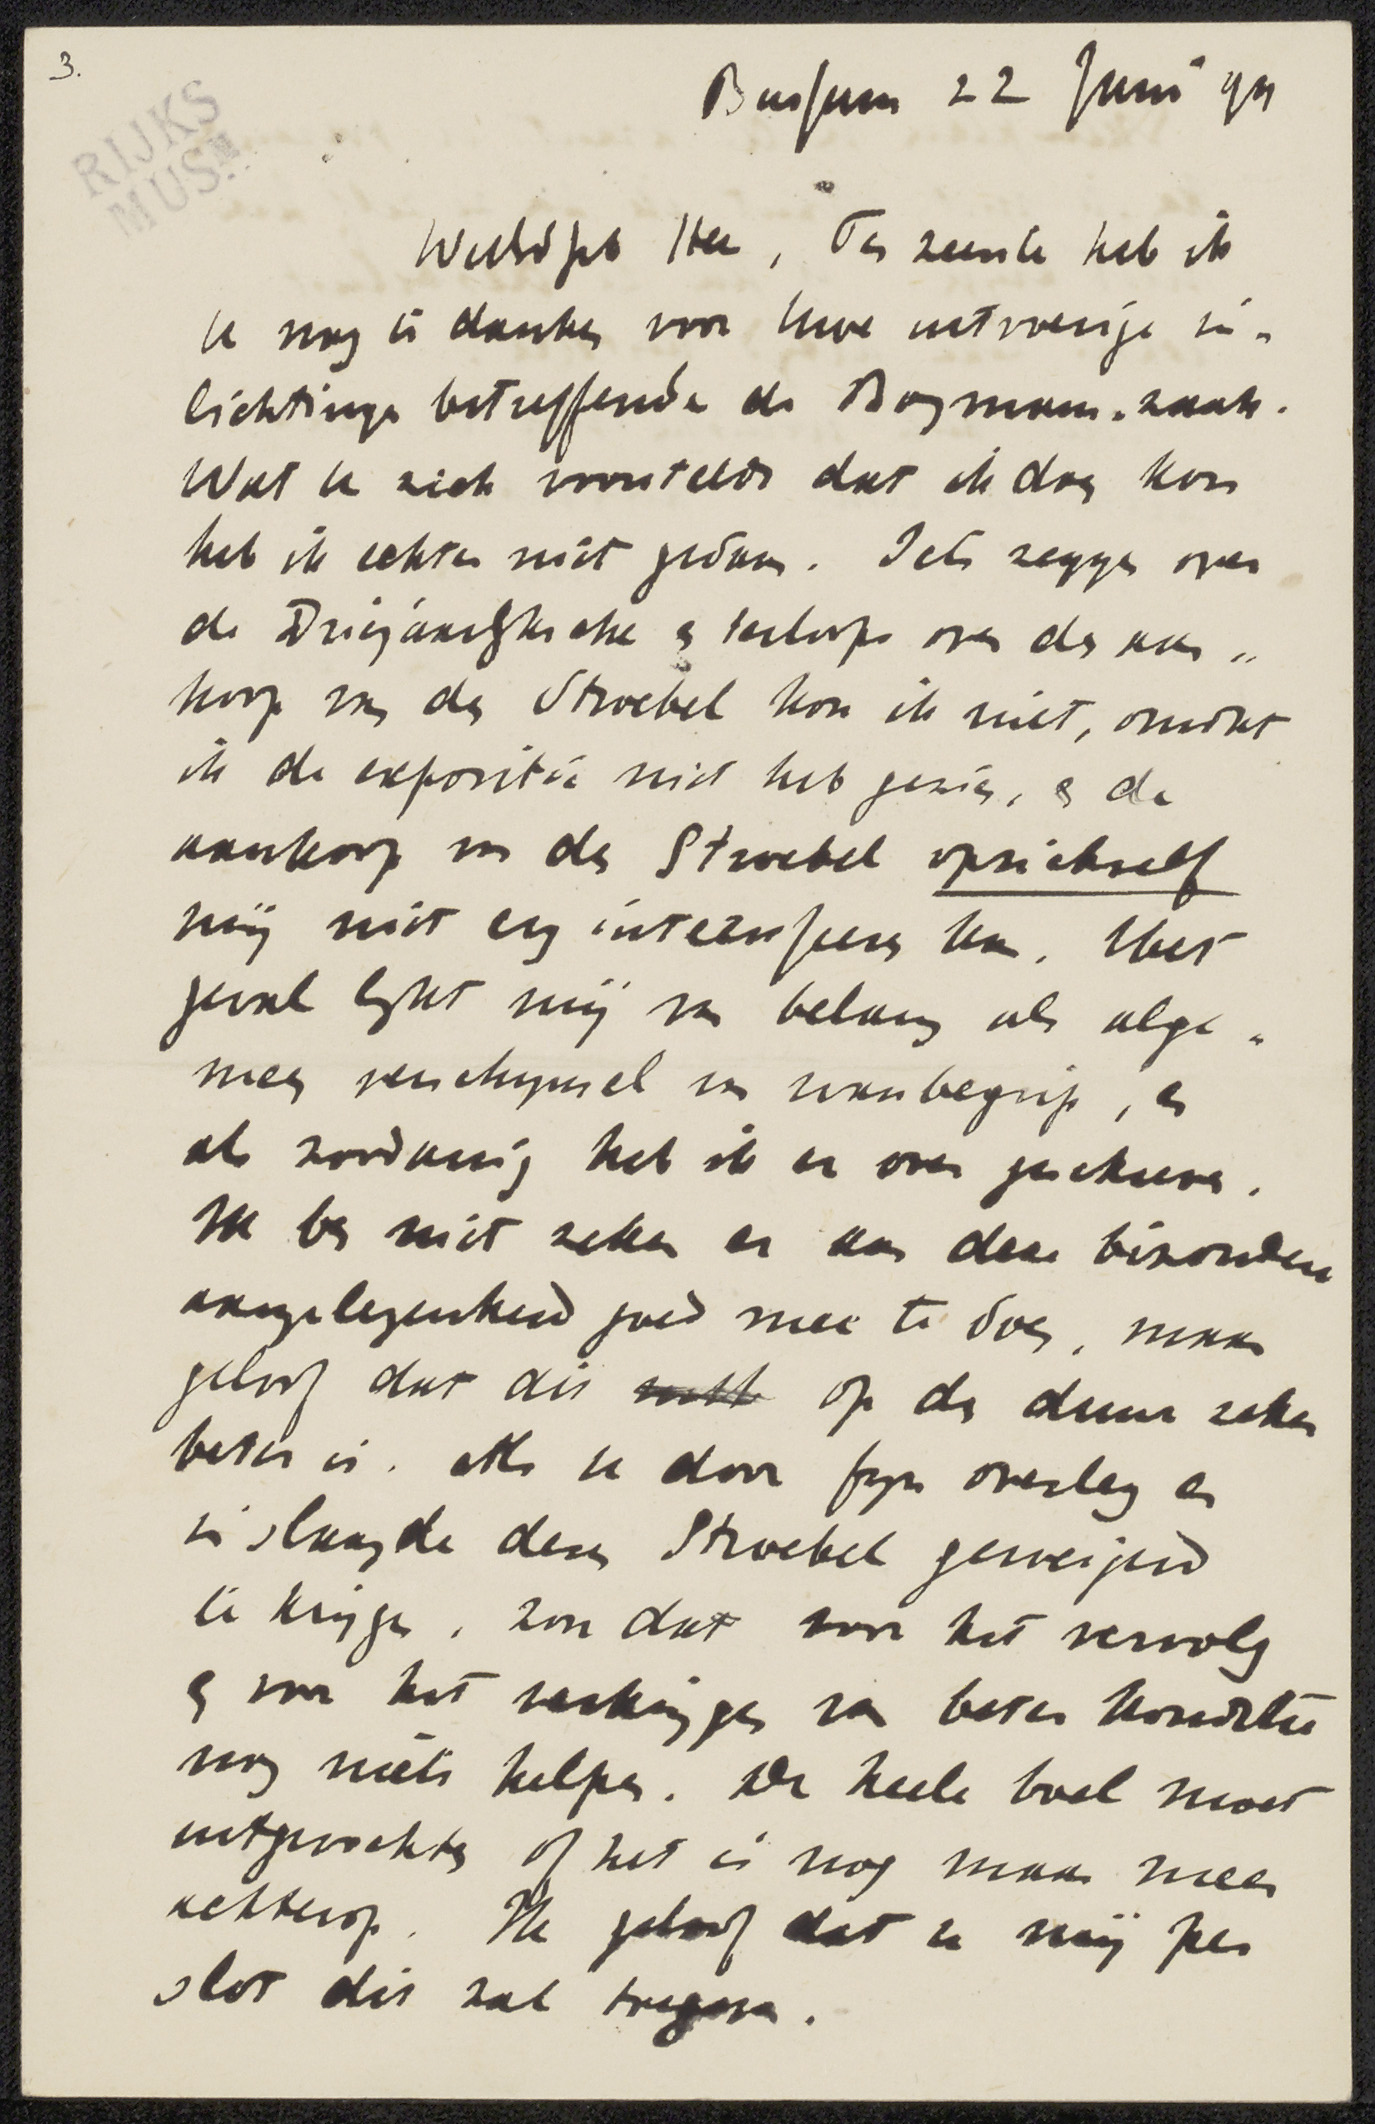 3.
RIJKS
MUSM.
Bussum 22 Juni 94
WelEdGeb Heer, Ten zeerste heb ik
U nog te danken voor Uwe uitvoerige in-
lichtingen betreffende de Boymans-zaak.
Wat U zich voorstelde dat ik doen kon
heb ik echter niet gedaan. Iets zeggen over
de Driejaarlijksche en terloops over den aan-
koop van den Stroebel kon ik niet, omdat
ik de expositie niet heb gezien, en de
aankoop van den Stroebel opzichzelf
mij niet erg interesseeren kan. Het
geval lijkt mij van belang als alge-
meen verschijnsel van wanbegrip, en
als zoodanig heb ik er over geschreven.
Ik ben niet zeker er aan deze bizondere
aangelegenheid goed mee te doen, maar
geloof dat dit op den duur zeker
beter is. Als U door fijn overleg er
in slaagde dezen Stroebel geweigerd
te krijgen, zou dat voor het vervolg
en voor het verkrijgen van beter konditie
nog niets helpen. De heele boel moet
uitgevochten of het is nog maar meer
achterop. Ik geloof dat U mij per
slot dit zal toegeven.